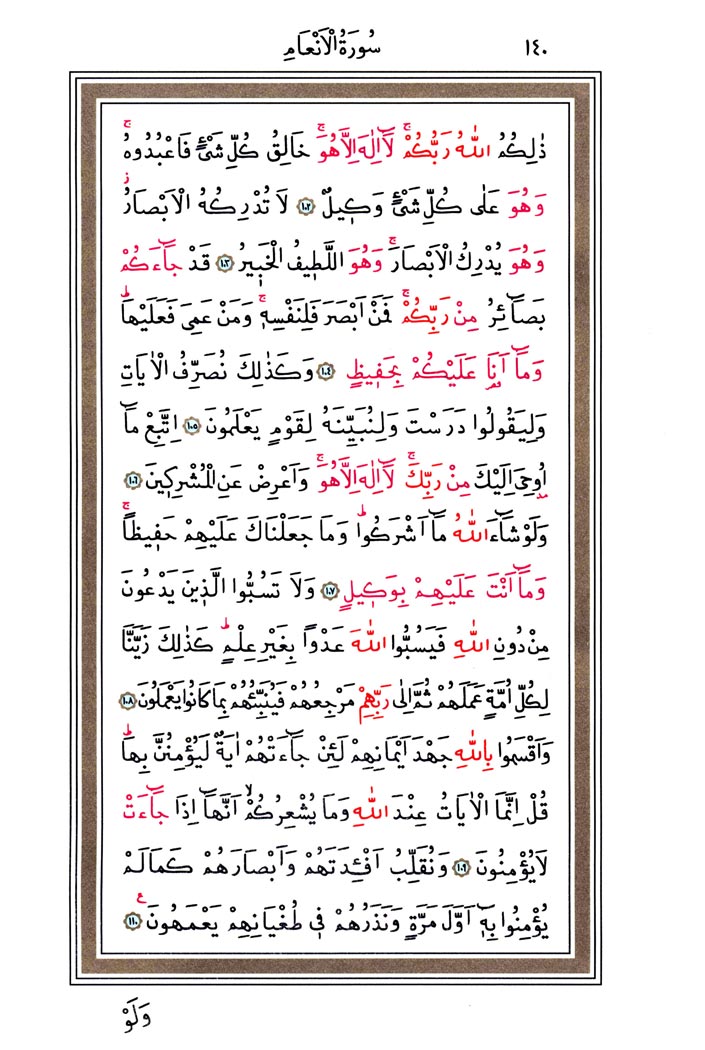 ١٤٠ سُورَةُ الْاَنْعَامِ
ذٰلِكُمُ اللّٰهُ رَبُّكُمْۚ لَٓا اِلٰهَ اِلَّا هُوَۚ خَالِقُ كُلِّ شَيْءٍ فَاعْبُدُوهُۚ
وَهُوَ عَلٰى كُلِّ شَيْءٍ وَك۪يلٌ ١٠٢ لَا تُدْرِكُهُ الْاَبْصَارُۘ
وَهُوَ يُدْرِكُ الْاَبْصَارَۚ وَهُوَ اللَّط۪يفُ الْخَب۪يرُ ١٠٣ قَدْ جَٓاءَكُمْ
بَصَٓائِرُ مِنْ رَبِّكُمْۚ فَمَنْ اَبْصَرَ فَلِنَفْسِه۪ۚ وَمَنْ عَمِيَ فَعَلَيْهَاۜ
وَمَٓا اَنَا۬ عَلَيْكُمْ بِحَف۪يظٍ ١٠٤ وَكَذٰلِكَ نُصَرِّفُ الْاٰيَاتِ
وَلِيَقُولُوا دَرَسْتَ وَلِنُبَيِّنَهُ لِقَوْمٍ يَعْلَمُونَ ١٠٥ اِتَّبِعْ مَٓا
اُو۫حِيَ اِلَيْكَ مِنْ رَبِّكَۚ لَٓا اِلٰهَ اِلَّا هُوَۚ وَاَعْرِضْ عَنِ الْمُشْرِك۪ينَ ١٠٦
وَلَوْ شَٓاءَ اللّٰهُ مَٓا اَشْرَكُواۜ وَمَا جَعَلْنَاكَ عَلَيْهِمْ حَف۪يظًاۚ
وَمَٓا اَنْتَ عَلَيْهِمْ بِوَك۪يلٍ ١٠٧ وَلَا تَسُبُّوا الَّذ۪ينَ يَدْعُونَ
مِنْ دُونِ اللّٰهِ فَيَسُبُّوا اللّٰهَ عَدْوًا بِغَيْرِ عِلْمٍۜ كَذٰلِكَ زَيَّنَّا
لِكُلِّ اُمَّةٍ عَمَلَهُمْ ثُمَّ اِلٰى رَبِّهِمْ مَرْجِعُهُمْ فَيُنَبِّئُهُمْ بِمَا كَانُوا يَعْمَلُونَ ١٠٨
وَاَقْسَمُوا بِاللّٰهِ جَهْدَ اَيْمَانِهِمْ لَئِنْ جَٓاءَتْهُمْ اٰيَةٌ لَيُؤْمِنُنَّ بِهَاۜ
قُلْ اِنَّمَا الْاٰيَاتُ عِنْدَ اللّٰهِ وَمَا يُشْعِرُكُمْۙ اَنَّهَٓا اِذَا جَٓاءَتْ
لَا يُؤْمِنُونَ ١٠٩ وَنُقَلِّبُ اَفْـِٔدَتَهُمْ وَاَبْصَارَهُمْ كَمَا لَمْ
يُؤْمِنُوا بِه۪ٓ اَوَّلَ مَرَّةٍ وَنَذَرُهُمْ ف۪ي طُغْيَانِهِمْ يَعْمَهُونَ ١١٠ ع
وَلَوْ